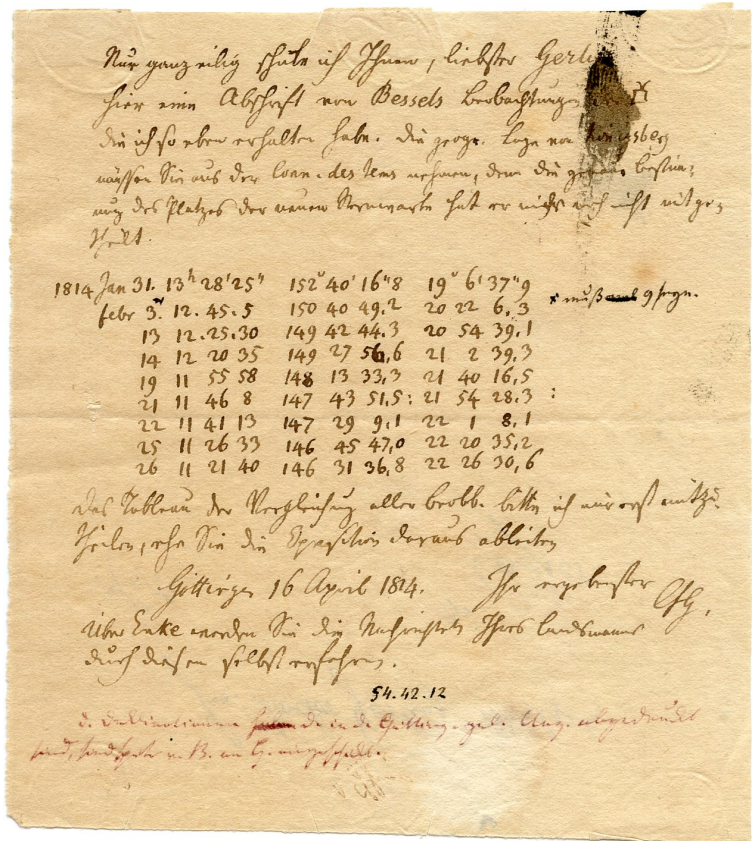 Nur ganz eilig schicke ich Ihnen, liebster Gerli
hier eine Abschrift von Bessels Beobachtungen der
die ich so eben erhalten habe. Die geogr. Lage von Königsberg
müssen Sie aus der Conn. des tems nehmen, denn die genaue Bestim-
mung des Platzes der neuen Sternwarte hat er mir noch nicht mitge-
theilt.
1814 Jan 31. 13h 28' 25" 152° 40' 16"8 19° 6' 37"9
Febr 3. 12. 45. 5 150 40 49,2 20 22 6,3 * muß 9 seyn.
13 12. 25. 30 149 42 44.3 20 54 39,1
14 12 20 35 149 27 56,6 21 2 39,3
19 11 55 58 148 13 33,3 21 40 16,5
21 11 46 8 147 43 51,5: 21 54 28.3 :
22 11 41 13 147 29 9,1 22 1 8,1
25 11 26 33 146 45 47,0 22 20 35,2
26 11 21 40 146 31 36,8 22 26 30,6
Das Tableau der Vergleichung aller Beobb. bitte ich mir erst mitzu-
theilen, ehe Sie die Opposition daraus ableiten
Göttingen 16 April 1814. Ihr ergebenster CFG.
Über Enke werden Sie die Nachrichten Ihres Landsmanns
durch diesen selbst erfahren.
54.42.12
d. Declinationen in d. Götting. gel. Anz. abgedruckt
sind, sind später v. B. an G. eingeschickt.